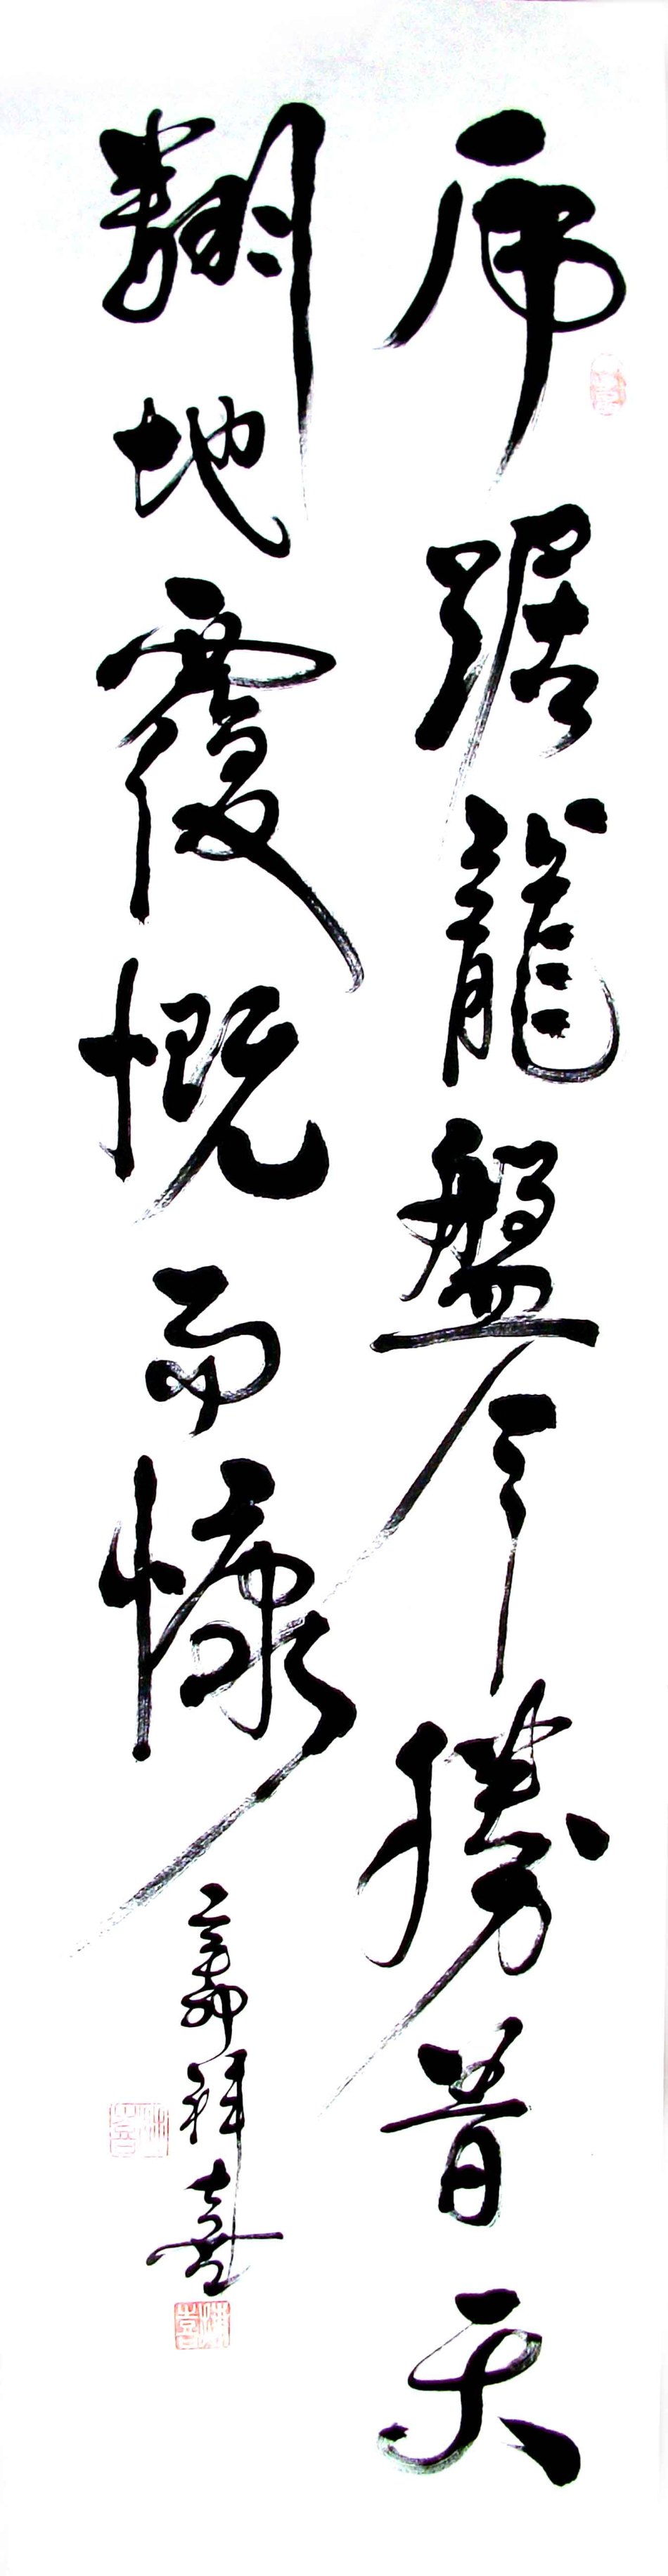 虎踞龍盤今勝昔天
翻地覆慨而慷
祥喜